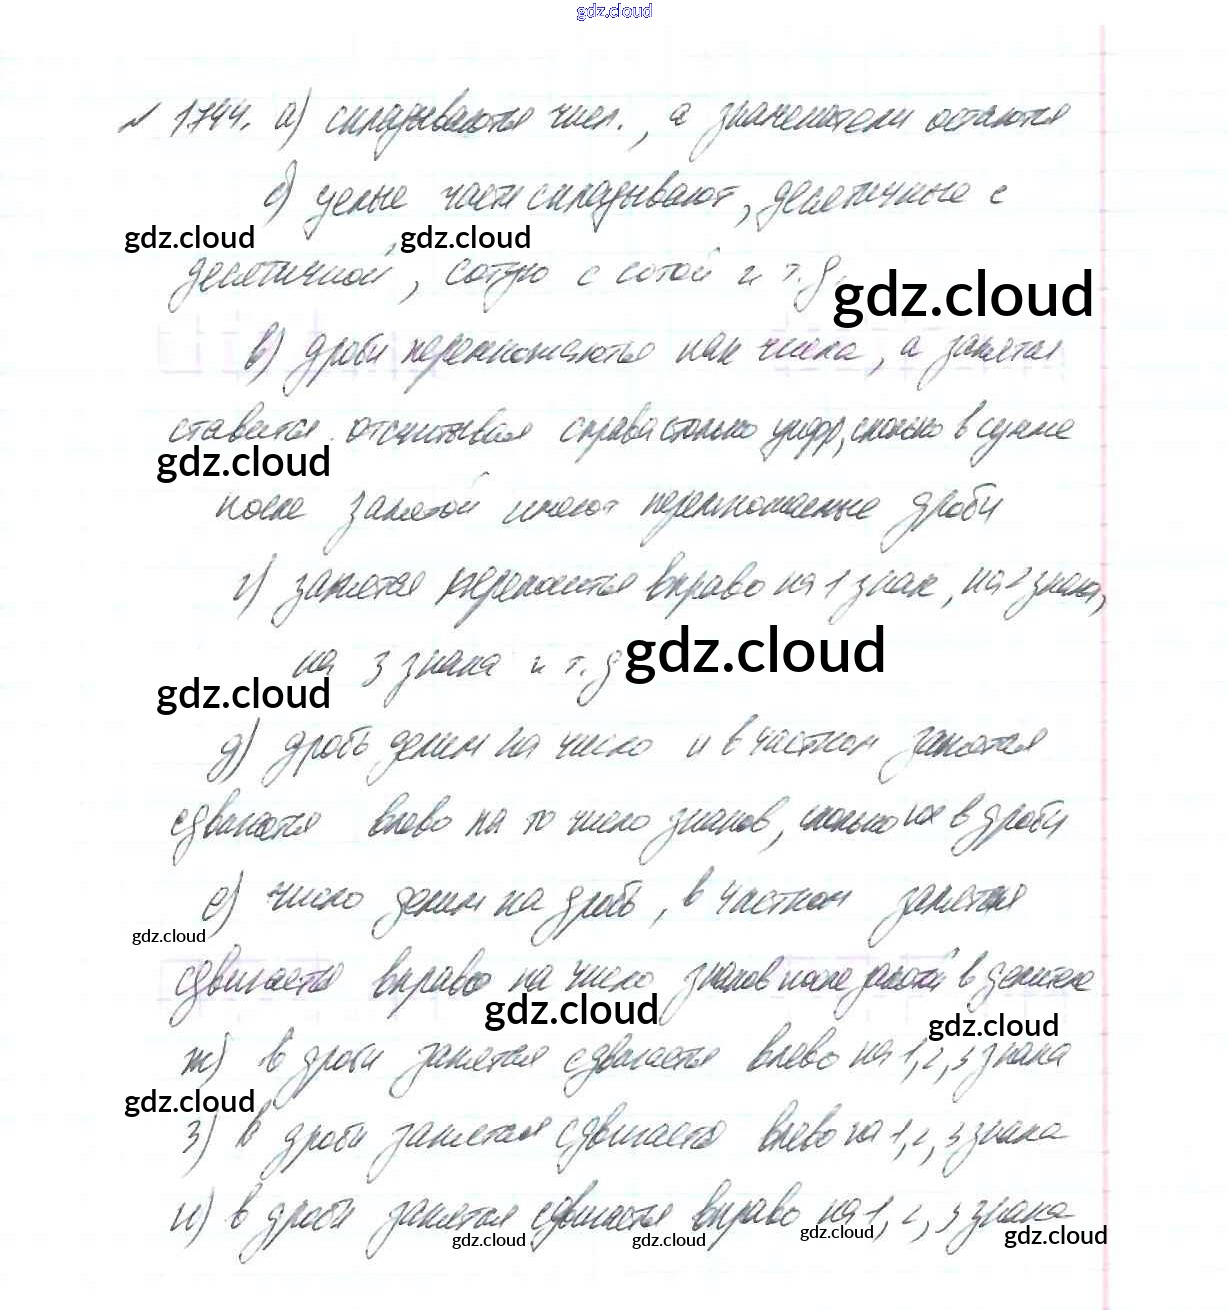 gdz.cloud
№ 1744. а) складываются числ., а знаменатели остаются
б) целые части складывают, десятичные с
gdz.cloud gdz.cloud
десятичной, сотую с сотой и т. д.
gdz.cloud
в) дроби перемножаются как числа, а запятая
ставится отсчитывая справа столько цифр, сколько в сумме
gdz.cloud
после запятой имеют перемножаемые дроби
г) запятая переносится вправо на 1 знак, на 2 знака,
на 3 знака и т. д
gdz.cloud
gdz.cloud
д) дробь делим на число и в частном запятая
сдвигается влево на то число знаков, сколько их в дроби
е) число делим на дробь, в частном запятая
gdz.cloud
сдвигается вправо на число знаков после запятой в делителе
gdz.cloud
gdz.cloud
ж) в дроби запятая сдвигается влево на 1, 2, 3 знака
gdz.cloud
з) в дроби запятая сдвигается влево на 1, 2, 3 знака
и) в дроби запятая сдвигается вправо на 1, 2, 3 знака
gdz.cloud gdz.cloud gdz.cloud gdz.cloud